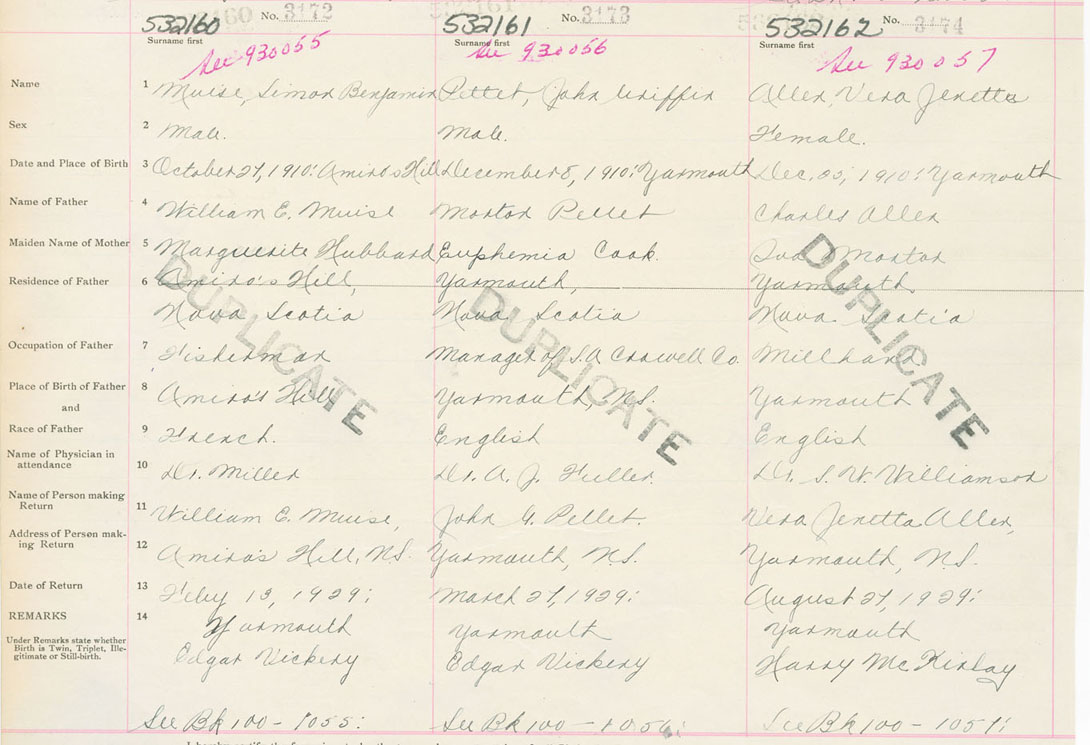 532160 No. 3172 532161 No. 3173 532162 No. 3174
Surname first Surname first Surname first
See 930055 See 930056 See 930057
Name 1 Muise, Simon Benjamin Pettet, John Griffin Allen, Vera Jenetta
Sex 2 Male. Male. Female.
Date and Place of Birth 3 October 27, 1910: Amiro's Hill December 8, 1910: Yarmouth Dec. 1910: Yarmouth
Name of Father 4 William E. Muise Morton Pettet Charles Allen
Maiden Name of Mother 5 Marguerite Hubbard Euphemia Cook. Morton
Residence of Father 6 Amiro's Hill, Yarmouth, Yarmouth
Nova Scotia Nova Scotia Nova Scotia
Occupation of Father 7 Fisherman Manager of Co. Millhand
Place of Birth of Father 8 Amiro's Hill Yarmouth, N.S. Yarmouth
and
Race of Father 9 French. English English
Name of Physician in
attendance 10 Dr. Miller Dr. A. J. Fuller. Dr. S. W. Williamson
Name of Person making
Return 11 William E. Muise, John G. Pettet. Vera Jenetta Allen,
Address of Person mak-
ing Return 12 Amiro's Hill, N.S. Yarmouth, N.S. Yarmouth, N.S.
Date of Return 13 Feby 13, 1929: March 27, 1929: August 27, 1929:
REMARKS 14 Yarmouth Yarmouth Yarmouth
Under Remarks state whether
Birth is Twin, Triplet, Ille-
gitimate or Still-birth.
Edgar Vickery Edgar Vickery Harry McKinlay
See Bk 100 - 1055: See Bk 100 - 1056: See Bk 100 - 1057:
DUPLICATE DUPLICATE DUPLICATE